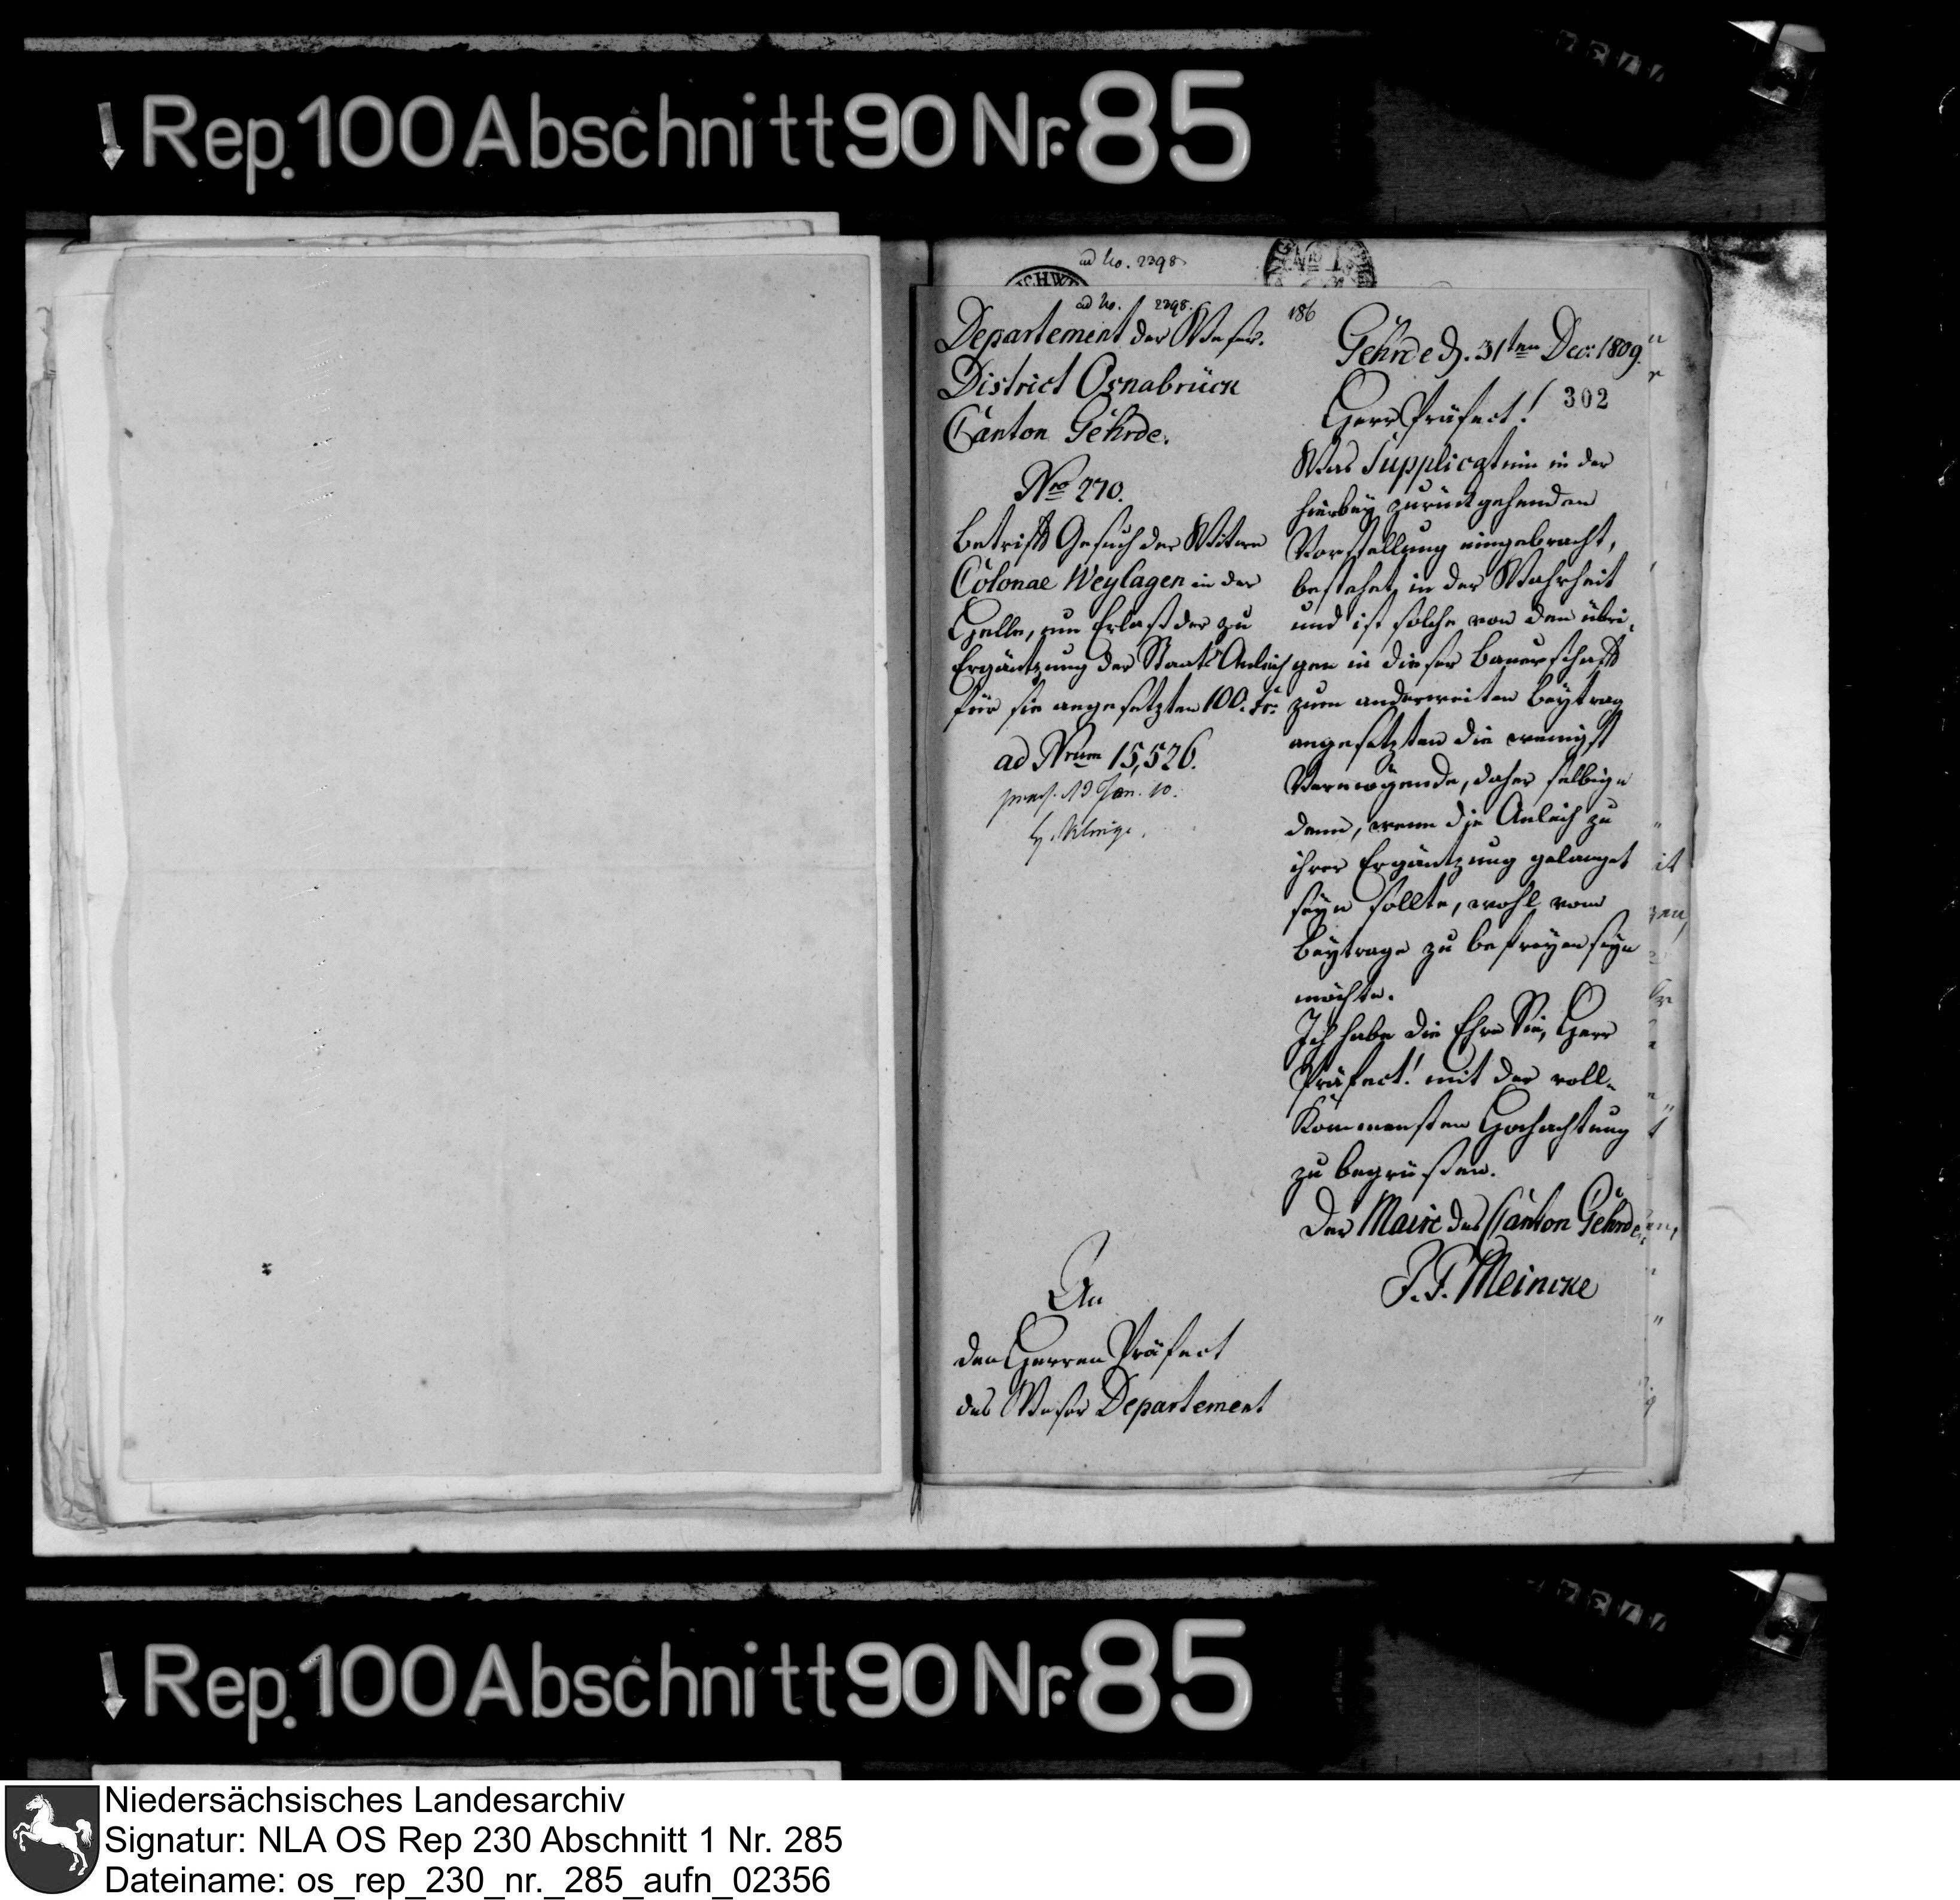 Rep. 100 Abschnitt 90 Nr. 85
ad No. 2298
ad No. 2298.
Departement der Weser.
District Osnabrück
Canton Gehrde.
Nro 270.
betrifft Gesuch der Witwe
Colonae Weylagen in der
Helle, um Erlaß der zu
Ergäntzung der Staats Anleih
für sie angesetzten 100. fr:
ad Nrum 15,526.
praes. 13 Jan. 10.
An
den Herren Präfect
des Weser Departement
186
Gehrde d. 31ten Dec: 1809.
302
Herr Präfect!
Was Supplicatin in der
hierbey zurückgehenden
Vorstellung eingebracht,
bestehet in der Wahrheit
und ist solche von den übri-
gen in dieser Bauerschafft
zum anderweiten Beytrag
angesetzten die wenigst
Vermögende, daher selbige
dann, wenn die Anleih zu
ihrer Ergäntzung gelanget
seyn sollte, wohl vom
Beytrage zu befreyen seyn
möchte.
Ich habe die Ehre Sie, Herr
Präfect! mit der voll-
kommensten Hochachtung
zu begrüßen.
Der Maire des Canton Gehrde,
Meincke
Rep. 100 Abschnitt 90 Nr. 85
Niedersächsisches Landesarchiv
Signatur: NLA OS Rep 230 Abschnitt 1 Nr. 285
Dateiname: os_rep_230_nr._285_aufn_02356